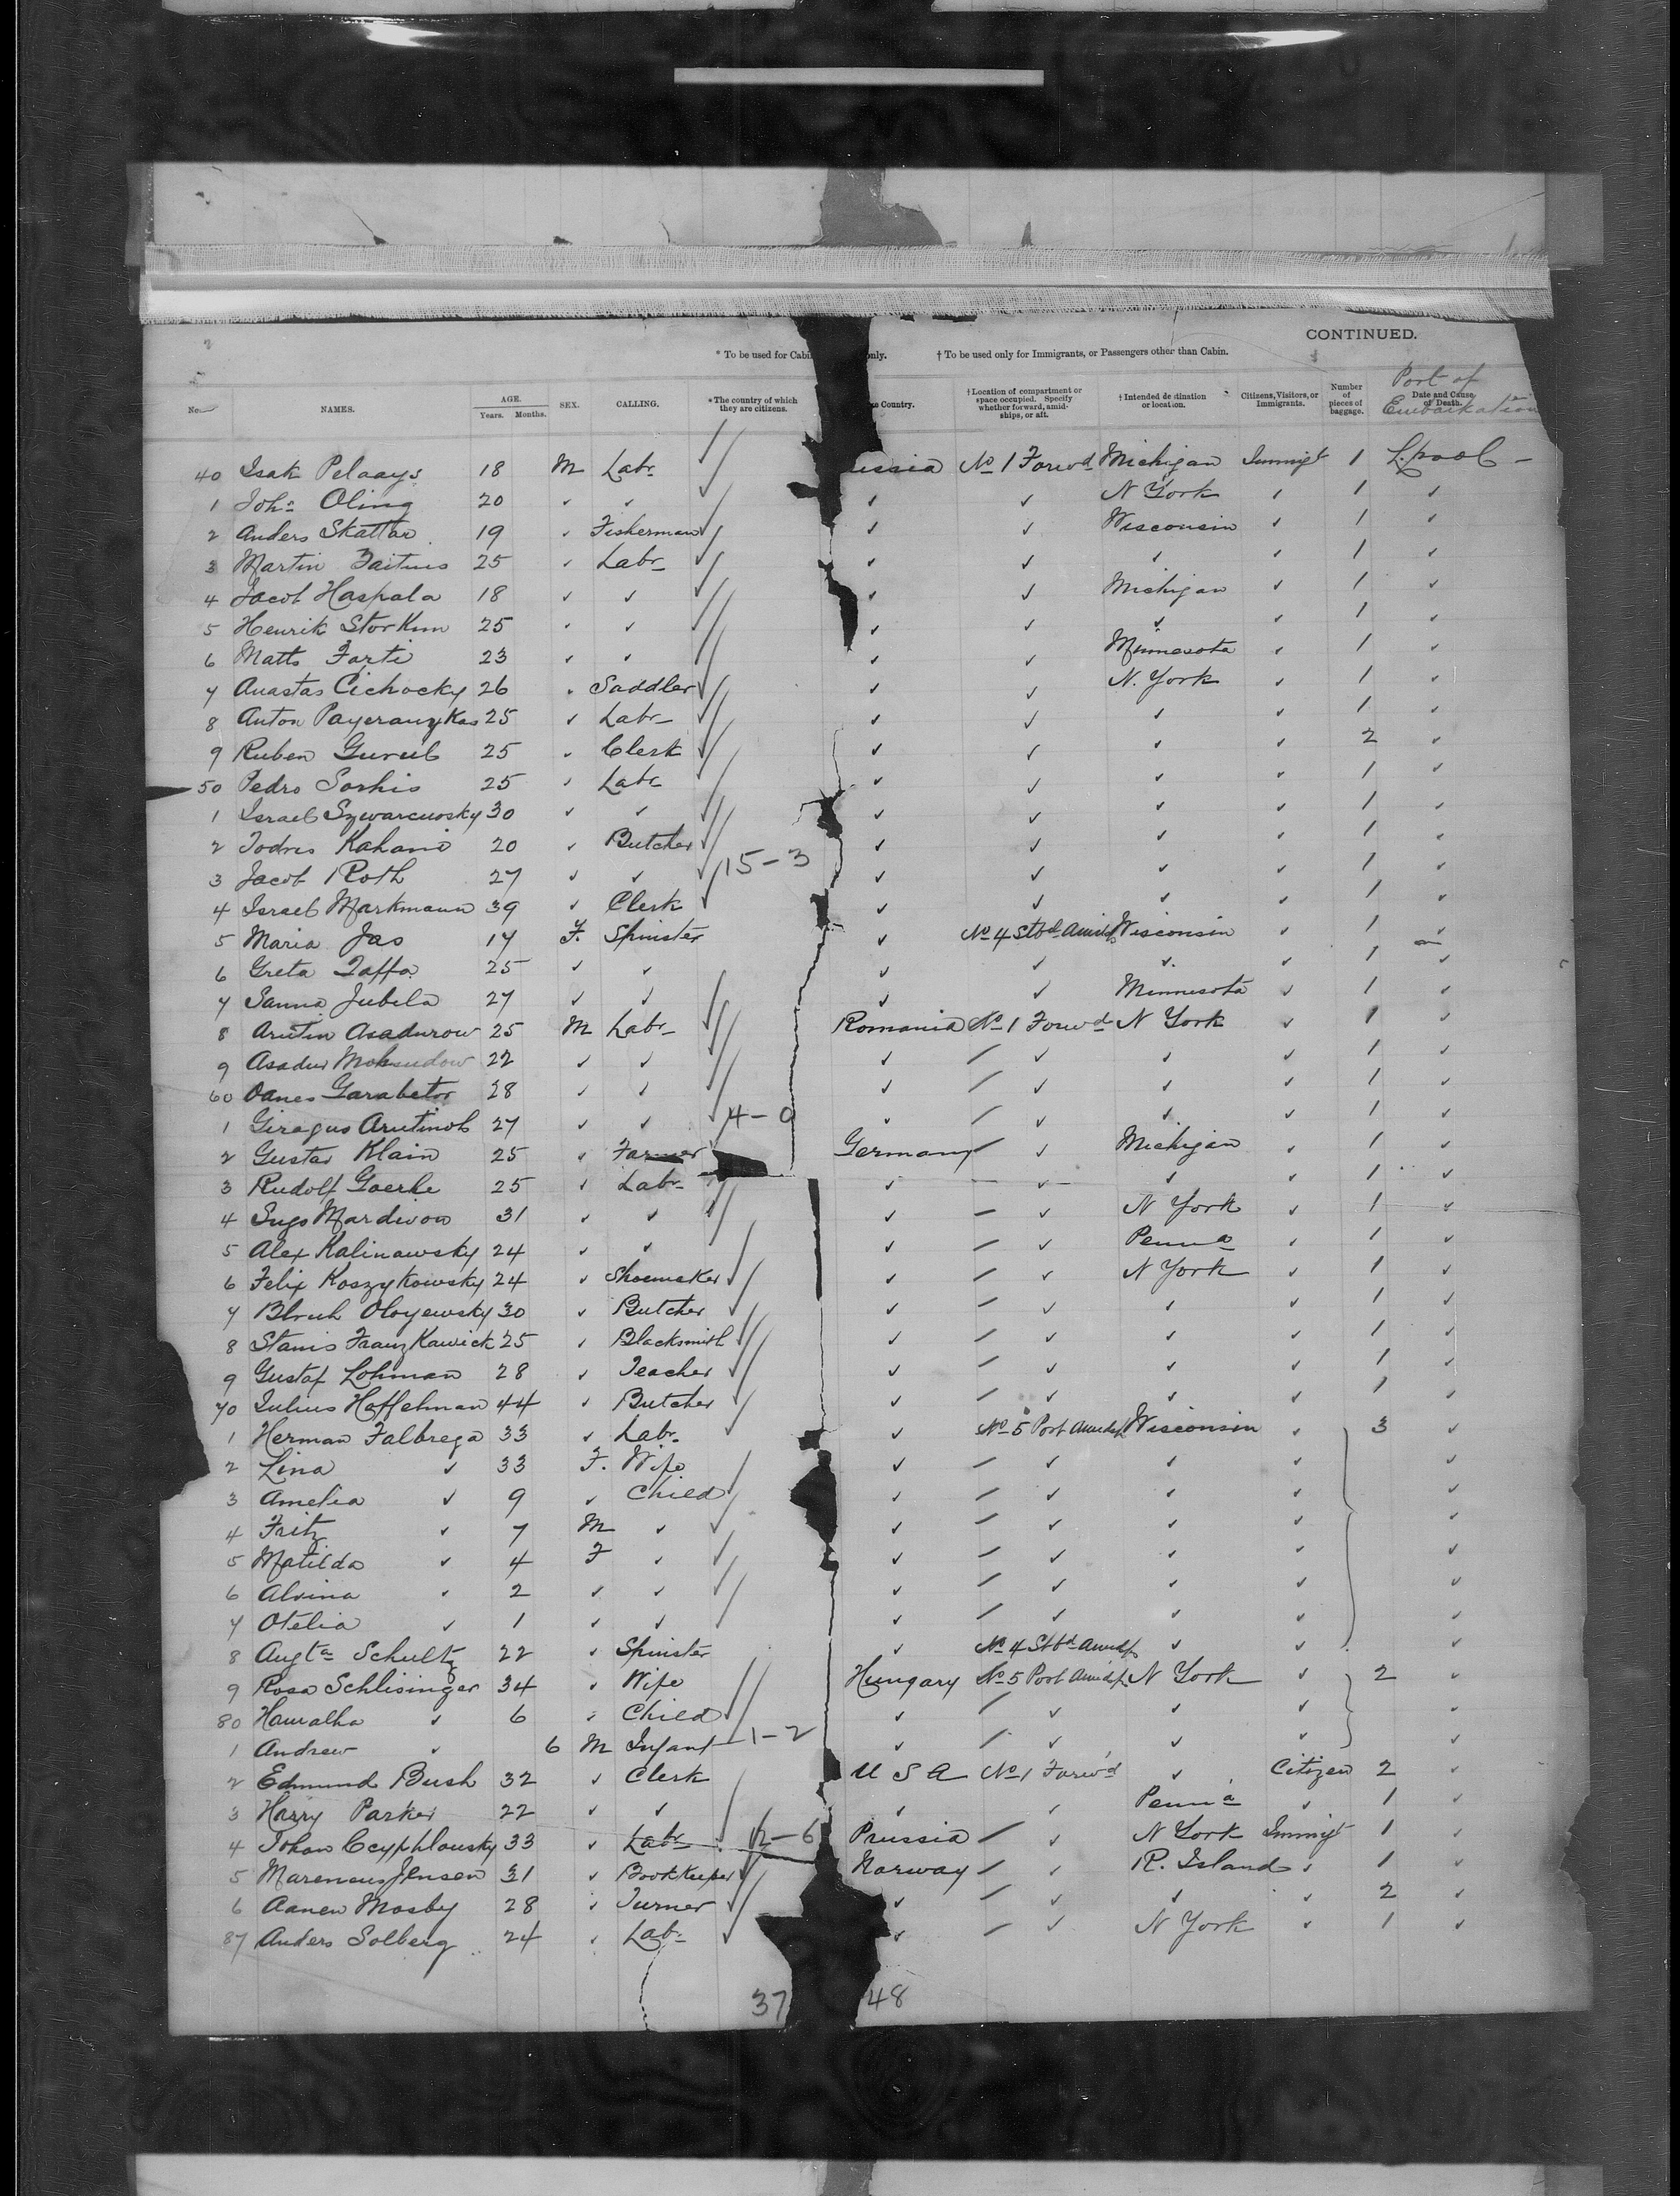 CONTINUED.
* To be used for Cabi only. † To be used only for Immigrants, or Passengers other than Cabin.
Port of Embarkation
No. NAMES. AGE. Years. Months. SEX. CALLING. *The country of which they are citizens. Country. †Location of compartment or space occupied. Specify whether forward, amidships, or aft. †Intended destination or location. Citizens, Visitors, or Immigrants. Number of pieces of baggage. Date and Cause of Death.
40 Isak Pelaays 18 M Labr ussia No 1 Forwd Michigan Immigt 1 L.pool -
1 Johs Oling 20 ✓ ✓ ✓ ✓ N York ✓ 1 ✓
2 Anders Skattar 19 ✓ Fisherman ✓ ✓ Wisconsin ✓ 1 ✓
3 Martin Faitus 25 ✓ Labr ✓ ✓ ✓ ✓ 1 ✓
4 Jacob Haspala 18 ✓ ✓ ✓ ✓ Michigan ✓ 1 ✓
5 Henrik Storkun 25 ✓ ✓ ✓ ✓ ✓ ✓ 1 ✓
6 Matts Farti 23 ✓ ✓ ✓ ✓ Minnesota ✓ 1 ✓
7 Anastas Cichocky 26 ✓ Saddler ✓ ✓ N. York ✓ 1 ✓
8 Anton 25 ✓ Labr ✓ ✓ ✓ ✓ 1 ✓
9 Ruben Gurul 25 ✓ Clerk ✓ ✓ ✓ ✓ 2 ✓
50 Pedro Sorkis 25 ✓ Labr ✓ ✓ ✓ ✓ 1 ✓
1 Israel Szwarcuosky 30 ✓ ✓ ✓ ✓ ✓ ✓ 1 ✓
2 Todres Kahano 20 ✓ Butcher ✓ ✓ ✓ ✓ 1 ✓
3 Jacob Roth 27 ✓ ✓ 15-3 ✓ ✓ ✓ ✓ 1 ✓
4 Israel Markmann 39 ✓ Clerk ✓ ✓ ✓ ✓ 1 ✓
5 Maria Jas 17 F. Spinster ✓ No 4 Stbd Amids Wisconsin ✓ 1 ✓
6 Greta Taffa 25 ✓ ✓ ✓ ✓ ✓ ✓ 1 ✓
7 Sanna Jubela 27 ✓ ✓ ✓ ✓ Minnesota ✓ 1 ✓
8 Arutin Asadurow 25 M Labr Romania No 1 Forwd N York ✓ 1 ✓
9 Asadur 22 ✓ ✓ ✓ / ✓ ✓ ✓ 1 ✓
60 Oanes Garabetor 28 ✓ ✓ ✓ / ✓ ✓ ✓ 1 ✓
1 Giragus Arutinob 27 ✓ ✓ 4-0 ✓ / ✓ ✓ ✓ 1 ✓
2 Gustav Klain 25 ✓ Farmer Germany / ✓ Michigan ✓ 1 ✓
3 Rudolf Goerke 25 ✓ Labr ✓ - ✓ ✓ ✓ 1 ✓
4 Mardivon 31 ✓ ✓ ✓ / ✓ N York ✓ 1 ✓
5 Alex Kalinawsky 24 ✓ ✓ ✓ / ✓ Penna ✓ 1 ✓
6 Felix Koszykowsky 24 ✓ Shoemaker ✓ / ✓ N York ✓ 1 ✓
7 Oloyewsky 30 ✓ Butcher ✓ / ✓ ✓ ✓ 1 ✓
8 Stanis Franzkawick 25 ✓ Blacksmith ✓ / ✓ ✓ ✓ 1 ✓
9 Gustaf Lohman 28 ✓ Teacher ✓ / ✓ ✓ ✓ 1 ✓
70 Julius Haffelman 44 ✓ Butcher ✓ / ✓ ✓ ✓ 1 ✓
1 Herman Falbrega 33 ✓ Labr ✓ No 5 Port Amids Wisconsin ✓ 3 ✓
2 Lina ✓ 33 F. Wife ✓ / ✓ ✓ ✓ ✓
3 Amelia ✓ 9 ✓ Child ✓ / ✓ ✓ ✓ ✓
4 Fritz ✓ 7 M ✓ ✓ / ✓ ✓ ✓ ✓
5 Matilda ✓ 4 F ✓ ✓ / ✓ ✓ ✓ ✓
6 Alvina ✓ 2 ✓ ✓ ✓ / ✓ ✓ ✓ ✓
7 Otelia ✓ 1 ✓ ✓ ✓ / ✓ ✓ ✓ ✓
8 Augta Schultz 22 ✓ Spinster ✓ No 4 Stbd Amids ✓ ✓ ✓
9 Rosa Schlisinger 34 ✓ Wife Hungary No 5 Port Amids N York ✓ 2 ✓
80 Hamalha ✓ 6 ✓ Child ✓ / ✓ ✓ ✓ ✓
1 Andrew ✓ 6 M Infant 1-2 ✓ / ✓ ✓ ✓ ✓
2 Edmund Bush 32 ✓ Clerk U S A No 1 Forwd ✓ Citizen 2 ✓
3 Harry Parker 22 ✓ ✓ ✓ ✓ Penna ✓ 1 ✓
4 Johan 33 ✓ Labr 12-6 Prussia / ✓ N York Immigt 1 ✓
5 Marensus Jensen 31 ✓ Bookkeeper Norway / ✓ R. Island ✓ 1 ✓
6 Aanen Mosby 28 ✓ Turner ✓ / ✓ ✓ ✓ 2 ✓
87 Anders Solberg 24 ✓ Labr ✓ / ✓ N York ✓ 1 ✓
37 48